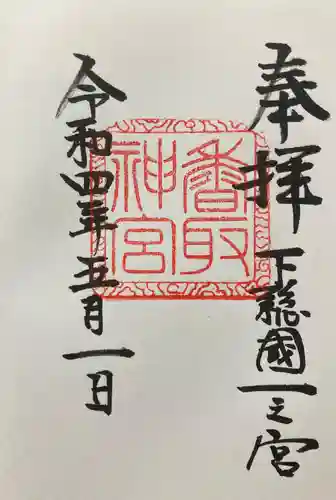 奉拝
下総國一之宮
香取
神宮
令和四年五月一日